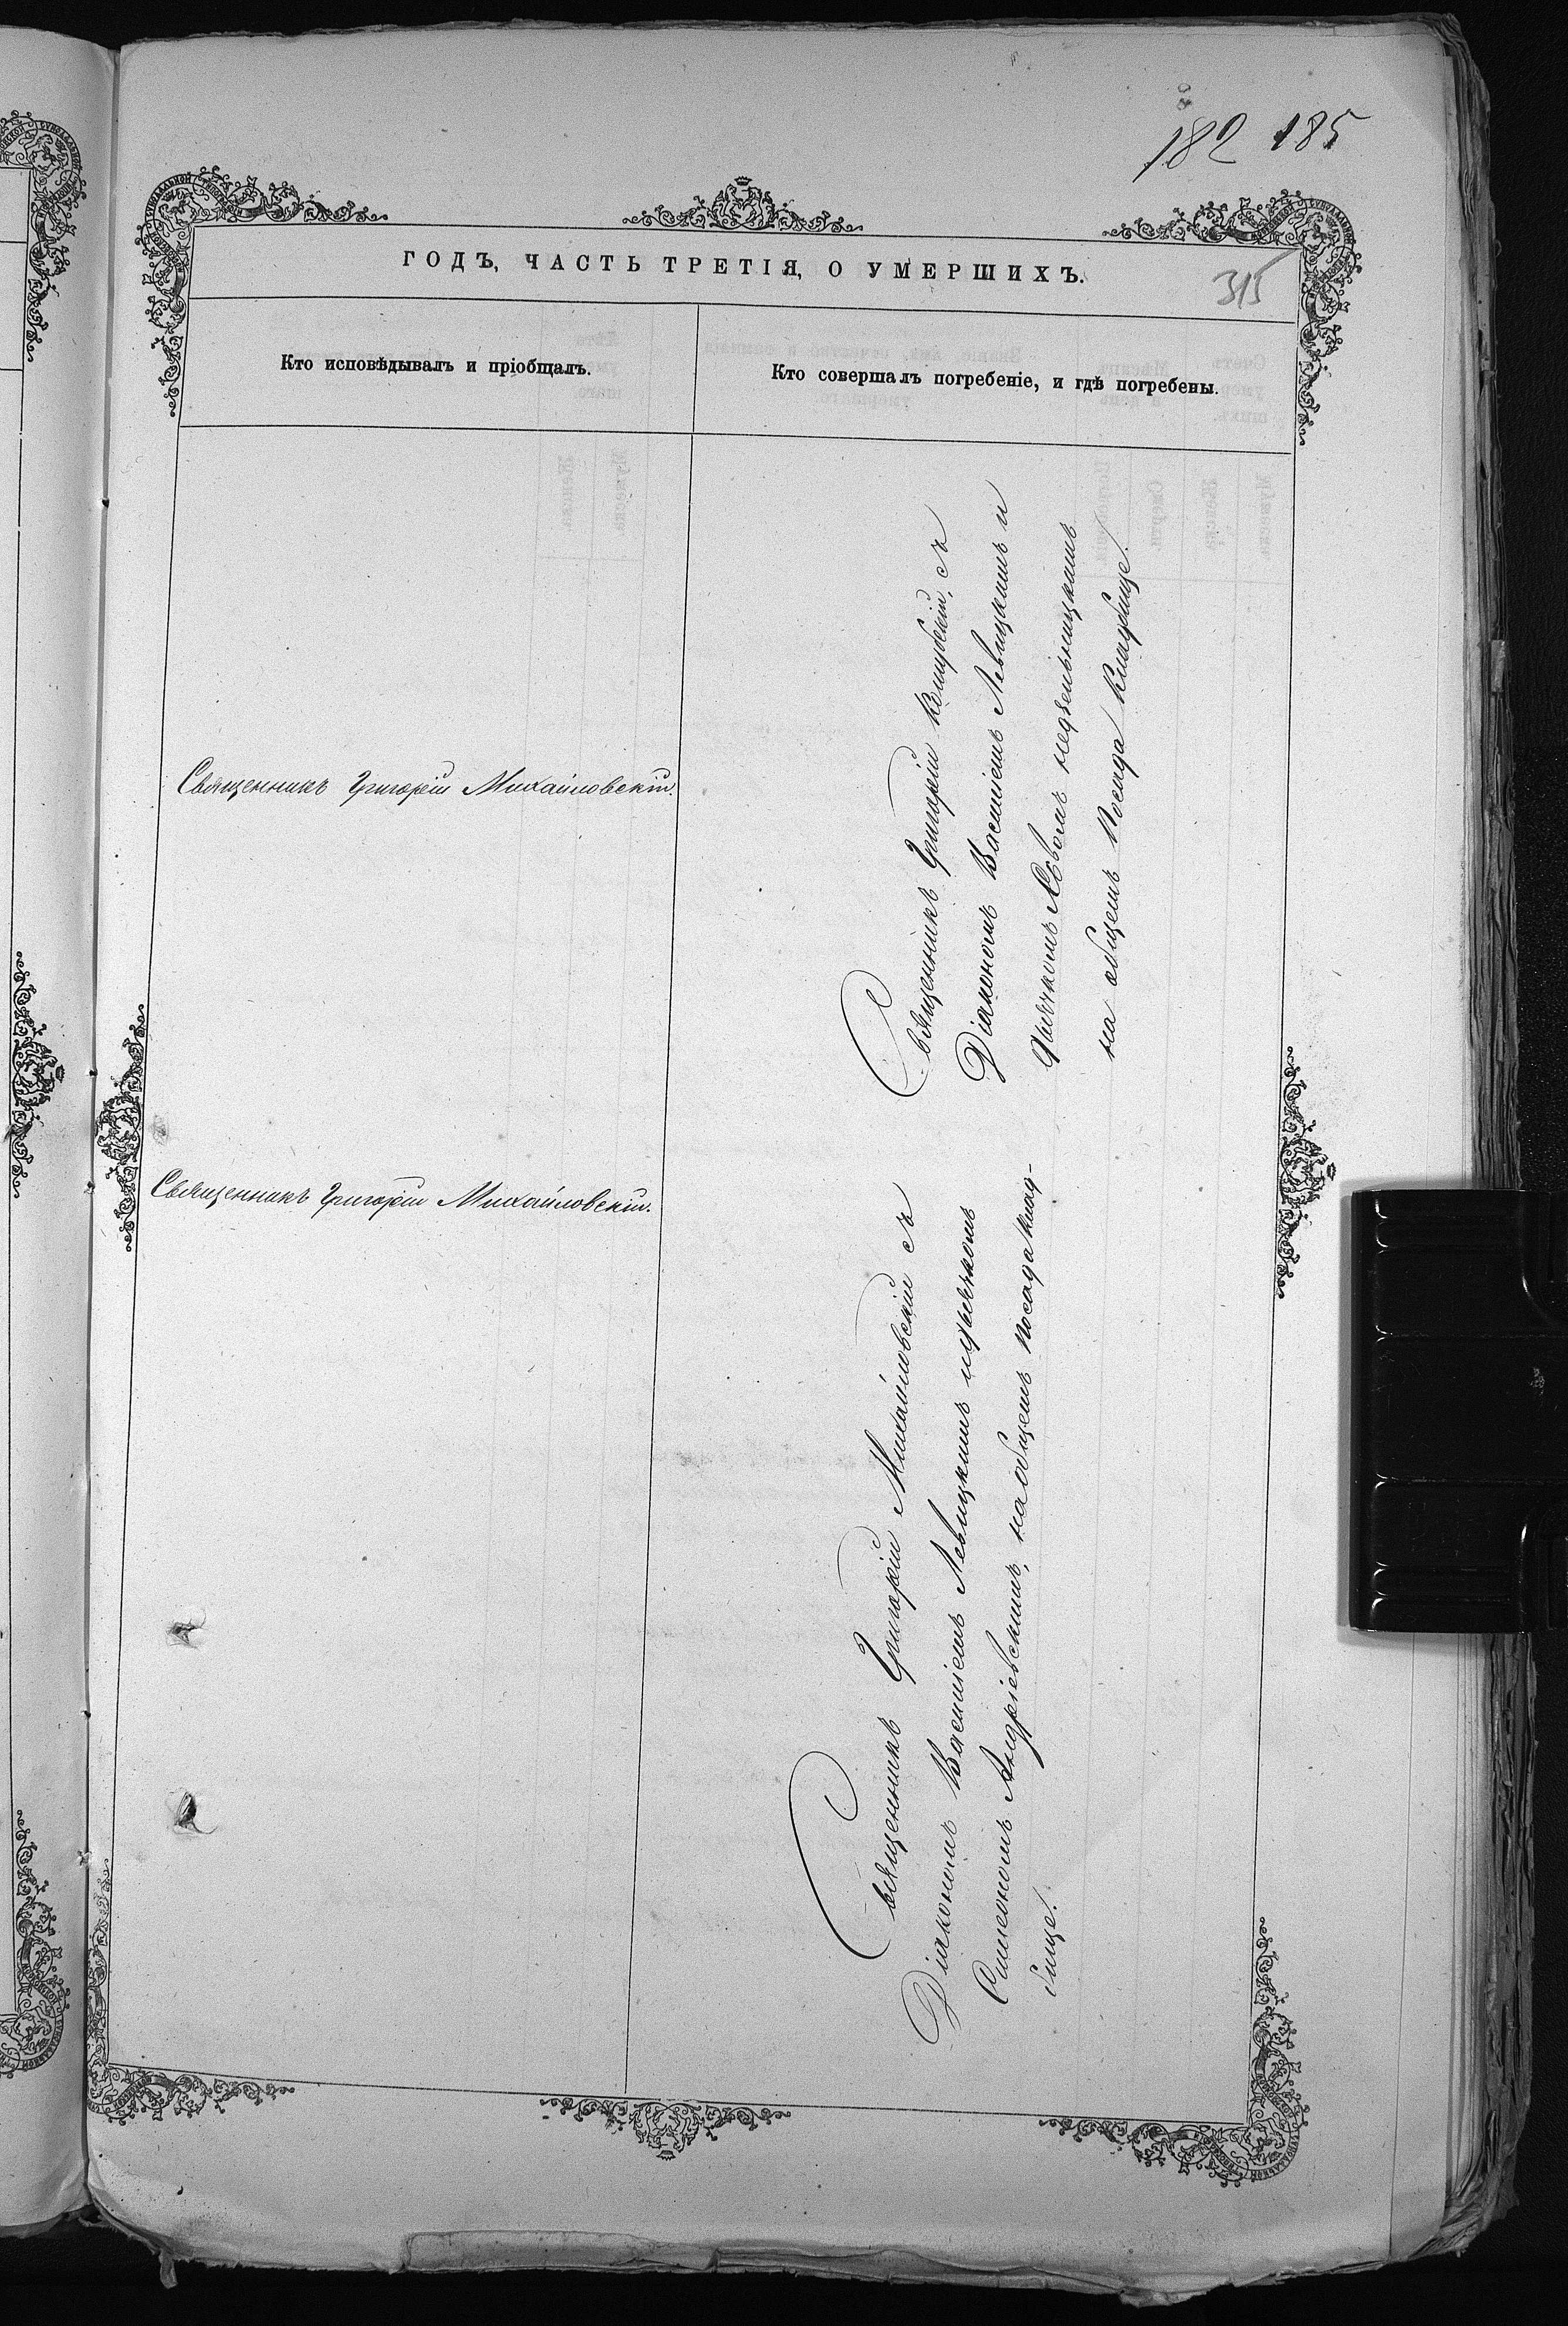 182 185
ГОДЪ, ЧАСТЬ ТРЕТІЯ, О УМЕРШИХЪ.
315
Кто исповѣдывалъ и пріобщалъ.
Кто совершалъ погребеніе, и гдѣ погребены.
Священникъ Григорій Михайловскій.
Священникъ Григорій съ
Діакономъ Василіемъ Левицкимъ и
дьячкомъ Львомъ Недзельницкимъ
на общемъ Посада кладбище.
Священникъ Григорій Михайловскій.
Священникъ Григорій Михайловскій съ
Діакономъ Василіемъ Левицкимъ и дьячкомъ
Симеономъ Андріевскимъ, на общемъ посада клад-
бище.